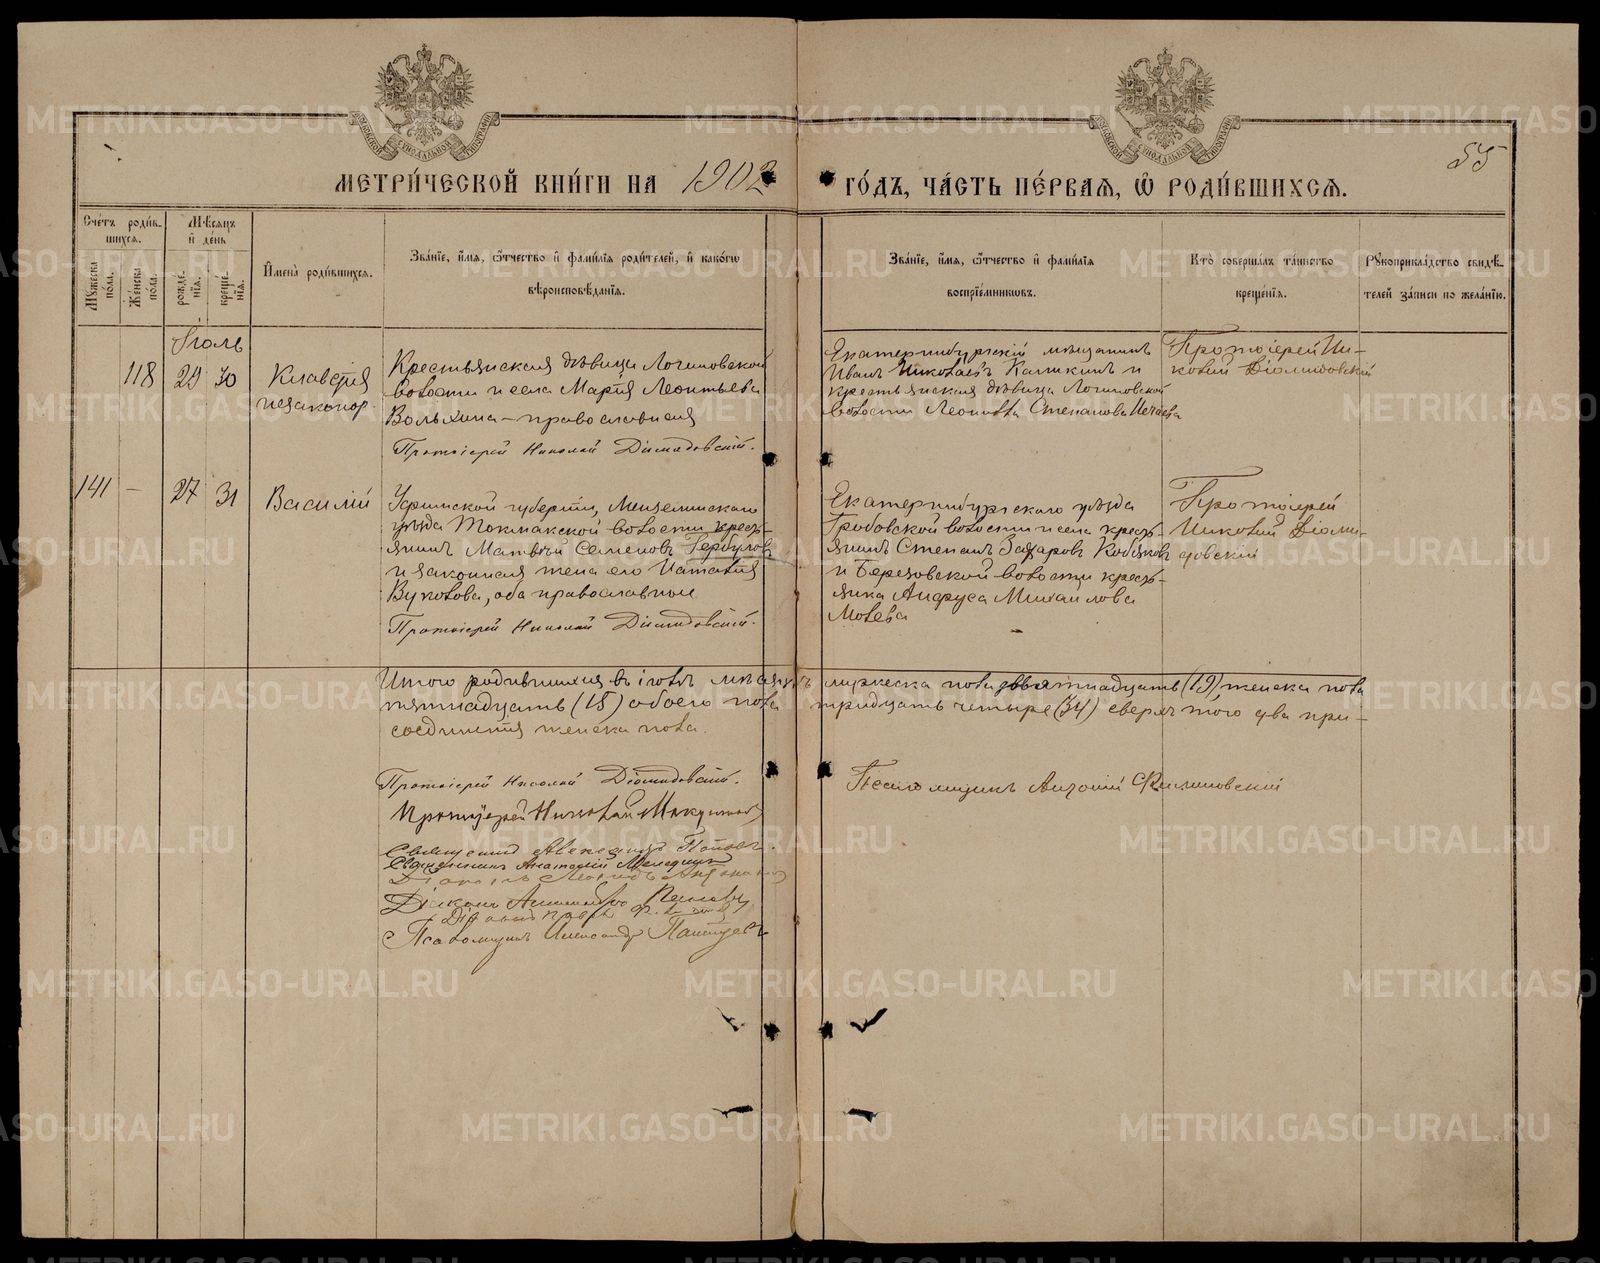 МОСКОВСКОЙ СѴНОДАЛЬНОЙ ТИПОГРАФІИ
МОСКОВСКОЙ СѴНОДАЛЬНОЙ ТИПОГРАФІИ
55
МЕТРИ́ЧЕСКОЙ КНИ́ГИ НА 1902 ГО́ДЪ, ЧА́СТЬ ПЕ́РВАѦ, Ѡ҆ РОДИ́ВШИХСѦ.
Сче́тъ роди́в-
шихсѧ.
Мꙋ́жеска по́ла.
Же́нска по́ла.
Мѣ́сѧцъ
и҆ де́нь
рожде́-
нїѧ.
креще́-
нїѧ.
И҆мена̀ роди́вшихсѧ.
Зва́нїе, и҆́мѧ, ѻ҆́тчество и҆ фами́лїѧ роди́телей, и҆ како́гѡ
вѣроисповѣ́данїѧ.
Зва́нїе, и҆́мѧ, ѻ҆́тчество и҆ фами́лїѧ
воспрїе́мникѡвъ.
Кто̀ соверша́лъ та́инство
креще́нїѧ.
Рꙋкоприкла́дство свидѣ́-
телей за́писи по жела́нїю.
Іюль
118 29 30 Клавдія
незаконор.
Крестьянская дѣвица Логиновской
волости и села Марія Леонтьева
Вольхина – православная
Протоіерей Николай Діомидовскій.
Екатеринбургскій мѣщанинъ
Иванъ Николаевъ Каликинъ и
крестьянская дѣвица Логиновской
волости Леонилла Степанова
Протоіерей Ни-
колай Діомидовскій
141 – 27 31 Василій
Уфимской губерніи, Мензелинскаго
уѣзда Токмакской волости кресть-
янинъ Матвѣй Семеновъ Гербуловъ
и законная жена его Наталія
Вуколова, оба православные
Протоіерей Николай Діомидовскій.
Екатеринбургскаго уѣзда
Гробовской волости и села кресть-
янинъ Степанъ Захаровъ Кобяковъ
и Березовской волости кресть-
янка Михаилова
Протоіерей
Николай Діоми-
довскій
Итого родившихся въ іюлѣ мѣсяцѣ мужеска пола девятнадцать (19), женска пола
пятнадцать (15) обоего пола тридцать четыре (34) сверхъ того два при-
соединенія женска пола.
Протоіерей Николай Діомидовскій.
Протоіерей Николай
Священникъ Александръ Поповъ.
Священникъ Анатолій
Діаконъ
Діаконъ
Діаконъ
Псаломщикъ Александръ
Псаломщикъ Антоній
METRIKI.GASO-URAL.RU